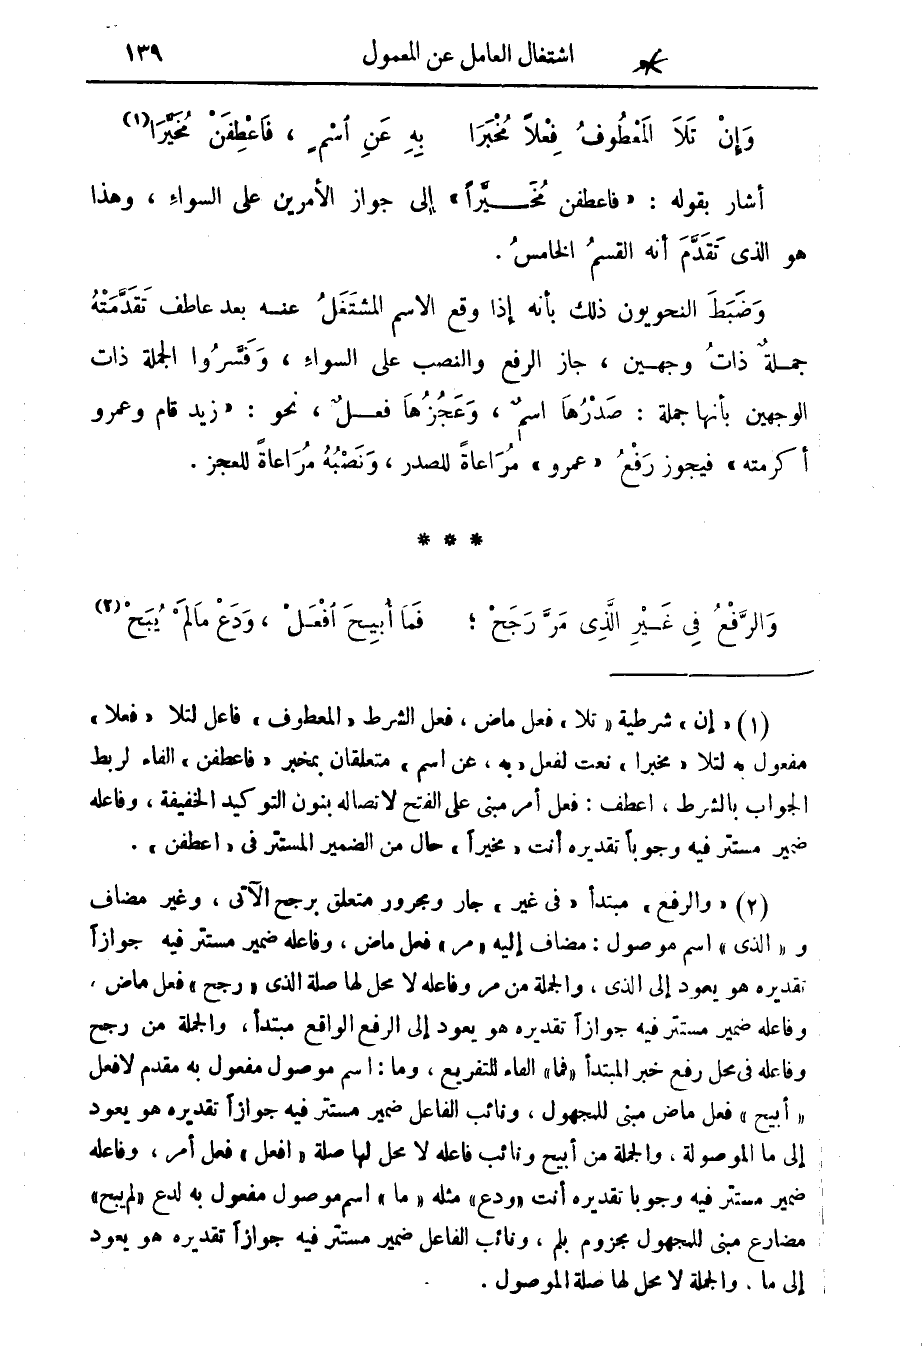 اشتغال العامل عن المعمول ١٣٩
وَإِنْ تَلَا الْمَعْطُوفُ فِعْلاً مُخْبَرَا بِهِ عَنِ اُسْمٍ ، فَاعْطِفَنْ مُخَيَّرَا(١)
أشار بقوله : « فاعطفن مُخَـيَّراً » إلى جواز الأمرين على السواء ، وهذا
هو الذى تَقَدَّمَ أنه القسمُ الخامسُ .
وَضَبَطَ النحويون ذلك بأنه إذا وقع الاسم المشْتَغَلُ عنـه بعد عاطف تَقَدَّمَتْهُ
جمـلةٌ ذاتُ وجهـين ، جاز الرفع والنصب على السواء ، وَفَسَّرُوا الجملة ذات
الوجهين بأنها جملة : صَدْرُهَا اسمٌ ، وَعَجُزُهَا فعـلٌ ، نحو : « زيد قام وعمرو
أكرمته » فيجوز رَفْعُ « عمرو » مُرَاعاةً للصدر ، وَنَصْبُهُ مُرَاعاةً للعجز .
* * *
وَالرَّفْعُ فِى غَـيْرِ الَّذِى مَرَّ رَجَحْ ؛ فَمَا أُبِيحَ اُفْعَـلْ ، وَدَعْ مَالَمْ يُبَحْ(٢)
(١) « إن » شرطية « تلا » فعل ماض ، فعل الشرط « المعطوف » فاعل لتلا « فعلا »
مفعول به لتلا « مخبرا » نعت لفعل « به ، عن اسم » متعلقان بمخبر « فاعطفن » الفاء لربط
الجواب بالشرط ، اعطف : فعل أمر مبنى على الفتح لاتصاله بنون التوكيد الخفيفة ، وفاعله
ضمير مستتر فيه وجوباً تقديره أنت « مخيراً » حال من الضمير المستتر فى « اعطفن » .
(٢) « والرفع » مبتدأ « فى غير » جار ومجرور متعلق برجح الآتى ، وغير مضاف
و « الذى » اسم موصول : مضاف إليه « مر » فعل ماض ، وفاعله ضمير مستتر فيه جوازاً
تقديره هو يعود إلى الذى ، والجملة من مر وفاعله لا محل لها صلة الذى « رجح » فعل ماض ،
وفاعله ضمير مستتر فيه جوازاً تقديره هو يعود إلى الرفع الواقع مبتدأ ، والجملة من رجح
وفاعله فى محل رفع خبر المبتدأ « فما » الفاء للتفريع ، وما : اسم موصول مفعول به مقدم لافعل
« أبيح » فعل ماض مبنى للمجهول ، ونائب الفاعل ضمير مستتر فيه جوازاً تقديره هو يعود
إلى ما الموصولة ، والجملة من أبيح ونائب فاعله لا محل لها صلة « افعل » فعل أمر ، وفاعله
ضمير مستتر فيه وجوبا تقديره أنت « ودع » مثله « ما » اسم موصول مفعول به لدع « لم يبح »
مضارع مبنى للمجهول مجزوم بلم ، ونائب الفاعل ضمير مستتر فيه جوازاً تقديره هو يعود
إلى ما . والجملة لا محل لها صلة الموصول .